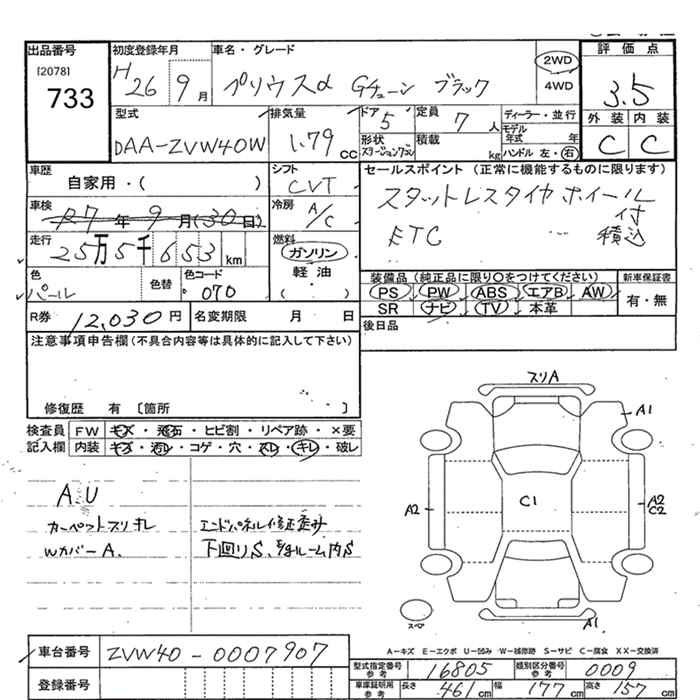 出品番号 [2078] 733
初度登録年月 H26 9月
車名・グレード プリウスα Gチューン ブラック
2WD
4WD
評価点 3.5
外装 内装
C C
型式 DAA-ZVW40W
排気量 1.79 cc
ドア 5
形状 ステーションワゴン
定員 7 人
積載 kg
ディーラー・並行
モデル年式 年
ハンドル 左・右
車歴 自家用・( )
シフト CVT
セールスポイント (正常に機能するものに限ります)
スタットレスタイヤホイール付
ETC 積込
車検 R7年9月(30日)
冷房 A/C
走行 25万5千653km
燃料 ガソリン
軽油
( )
色 パール
色替
色コード 070
装備品(純正品に限り○をつけてください)
新車保証書
PS PW ABS エアB AW
SR ナビ TV 本革
有・無
R券 12,030円
名変期限 月 日
後日品
注意事項申告欄(不具合内容等は具体的に記入して下さい)
修復歴 有 [箇所 ]
検査員 FW キズ・飛石・ヒビ割・リペア跡・×要
記入欄 内装 キズ・汚レ・コゲ・穴・スレ・キレ・破レ
A.U
カーペットスリキレ
Wカバー A.
エンドパネル修正歪み
下廻りS、ルーム内S
スリA
A1
A2
C1
A2
C2
スペア
A1
A-キズ E-エクボ U-凹み W-補修跡 S-サビ C-腐食 XX-交換済
車台番号 ZVW40-0007907
登録番号
型式指定番号 参考 16805
類別区分番号 参考 0009
車庫証明用 参考 長さ 461cm 幅 177cm 高さ 157cm